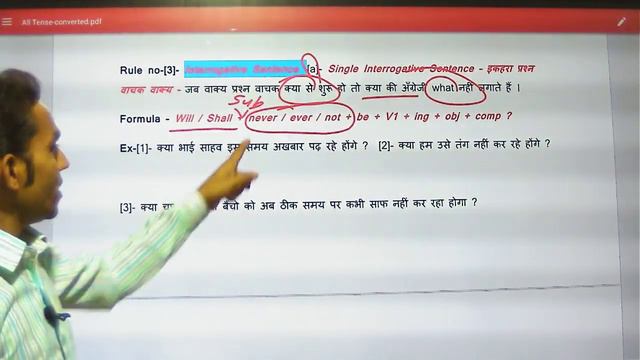 All Tense-converted.pdf
Rule no-[3]- Interrogative Sentence [a]- Single Interrogative Sentence - इकहरा प्रश्न
वाचक वाक्य - जब वाक्य प्रश्न वाचक क्या से शुरू हो तो क्या की अँग्रेजी what नहीं लगाते हैं ।
Sub
Formula - Will / Shall never / ever / not + be + V1 + ing + obj + comp ?
Ex-[1]- क्या भाई साहव इस समय अखबार पढ़ रहे होंगे ? [2]- क्या हम उसे तंग नहीं कर रहे होंगे ?
[3]- क्या बैंचो को अब ठीक समय पर कभी साफ नहीं कर रहा होगा ?